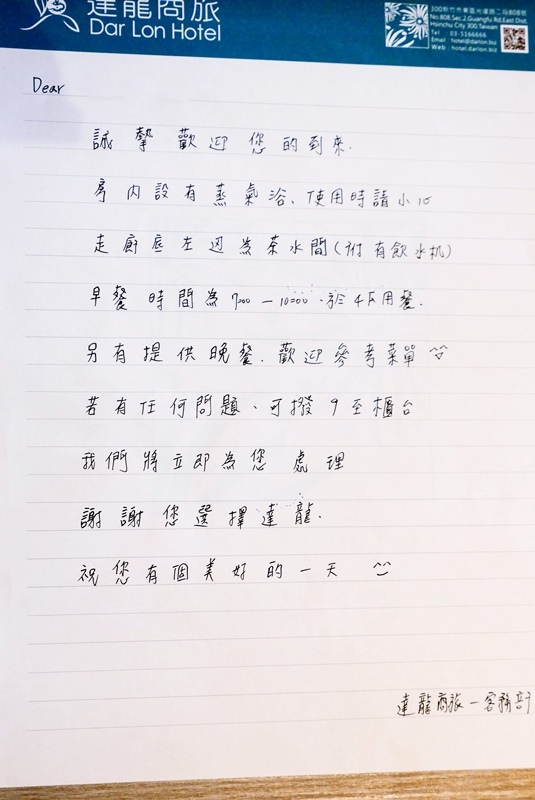 達龍商旅
Dar Lon Hotel
300新竹市東區光復路二段808號
No.808,Sec.2,Guangfu Rd,East Dist,
Hsinchu City 300,Taiwan
Tel : 03-5166666
Email : hotel@darlon.biz
Web : hotel.darlon.biz
Dear
誠摯歡迎您的到來.
房內設有蒸氣浴、使用時請小心
走廊底左邊為茶水間(附有飲水机)
早餐時間為7:00—10:00、於4F用餐.
另有提供晚餐.歡迎參考菜單^^
若有任何問題、可撥9至櫃台
我們將立即為您處理
謝謝您選擇達龍.
祝您有個美好的一天
達龍商旅—客務部